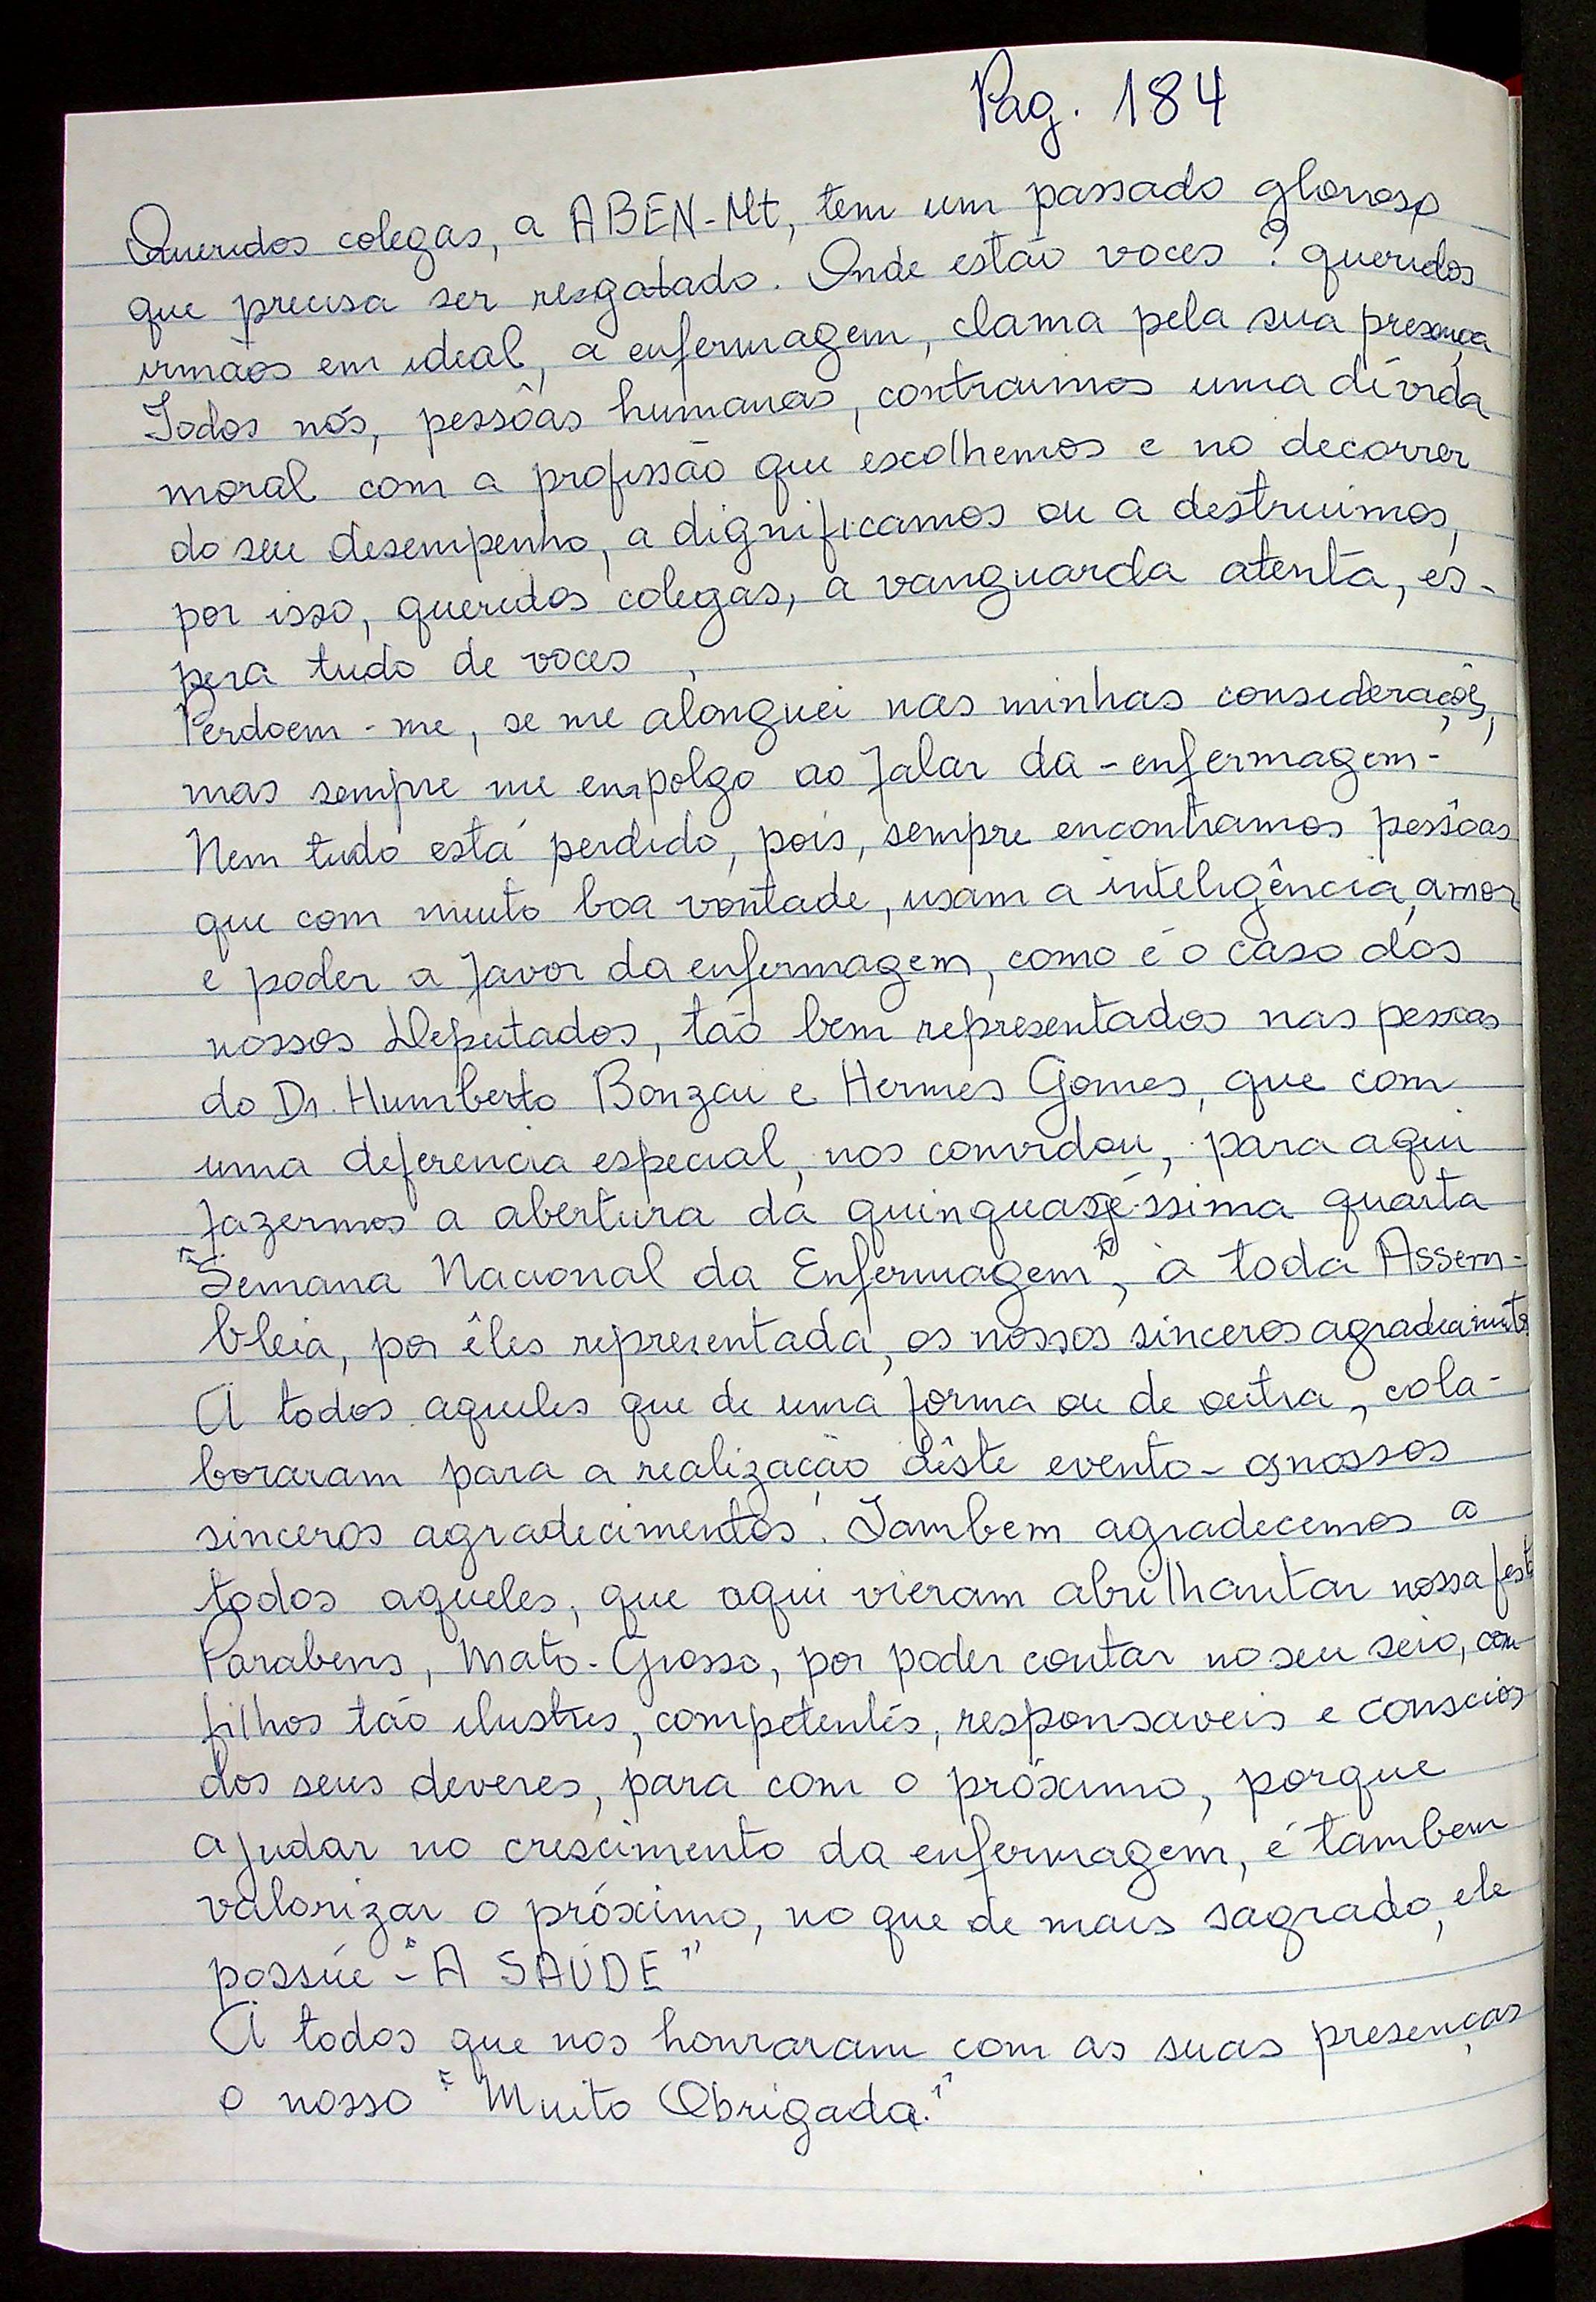 Pag. 184
Queridos colegas, a ABEN-Mt, tem um passado glorioso
que precisa ser resgatado. Onde estão voces? queridos
irmãos em ideal, a enfermagem, clama pela sua presença
Todos nós, pessôas humanas, contraimos uma divida
moral com a profissão que escolhemos e no decorrer
do seu desempenho, a dignificamos ou a destruimos,
por isso, queridos colegas, a vanguarda atenta, es-
pera tudo de voces,
Perdoem-me, se me alonguei nas minhas considerações,
mas sempre me empolgo ao falar da - enfermagem -
Nem tudo está perdido, pois, sempre encontramos pessôas
que com muito boa vontade, usam a inteligência, amor
e poder a favor da enfermagem, como é o caso dos
nossos Deputados, tão bem representados nas pessoas
do Dr. Humberto Bonzai e Hermes Gomes, que com
uma deferencia especial, nos convidou, para aqui
fazermos a abertura da quinquagéssima quarta
"Semana Nacional da Enfermagem", à toda Assem-
bleia, por êles representada, os nossos sinceros agradecimentos
A todos aqueles que de uma forma ou de outra, cola-
boraram para a realização dêste evento - os nossos
sinceros agradecimentos. Tambem agradecemos a
todos aqueles, que aqui vieram abrilhantar nossa festa
Parabens, Mato-Grosso, por poder contar no seu seio, com
filhos tão ilustres, competentes, responsaveis e conscios
dos seus deveres, para com o próximo, porque
ajudar no crescimento da enfermagem, é tambem
valorizar o próximo, no que de mais sagrado, ele
possúe - "A SAÚDE"
A todos que nos honraram com as suas presenças
o nosso "Muito Obrigada."